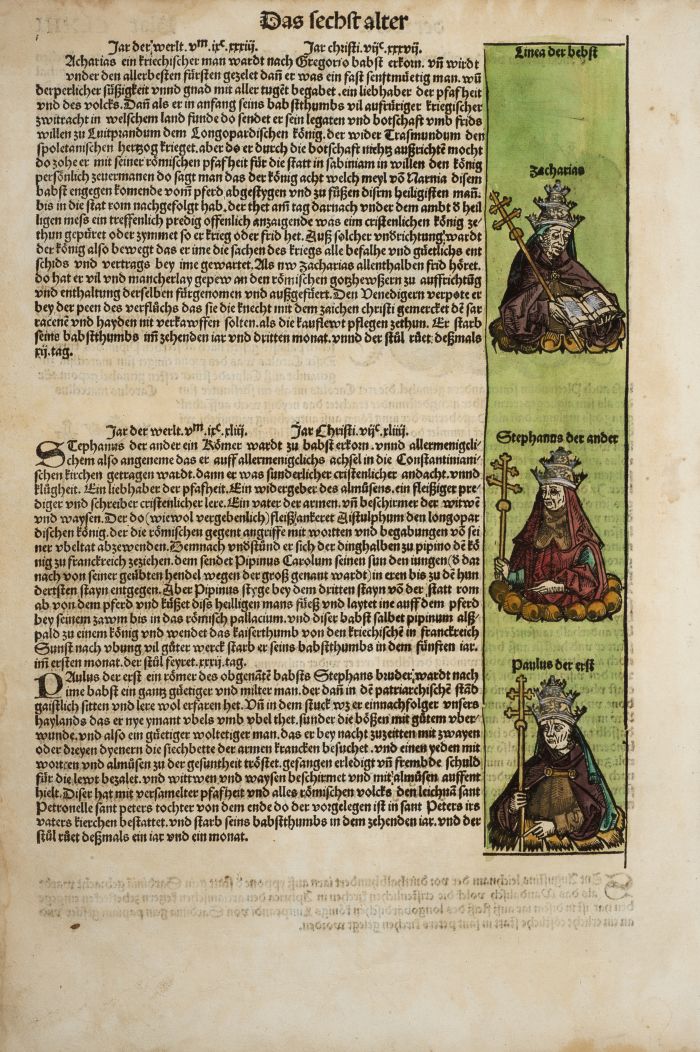 Das sechst alter
Jar der werlt. vᵐ. ixᶜ. xxxiij. Jar christi. vijᶜ. xxxvij.
Linea der bebst
Acharias ein kriechischer man wardt nach Gregorio babst erkorn. vñ wirdt
vnder den allerbesten fürsten gezelet dañ er was ein fast senftmüetig man. wũ
derperlicher süßigkeit vnnd gnad mit aller tugẽt begabet. ein liebhaber der pfafheit
vnd des volcks. Dañ als er in anfang seins babstthumbs vil aufrüriger kriegischer
zwittracht in welschem land funde do sendet er sein legaten vnd botschaft vmb frids
willen zu Luitprandum dem Longopardischen künig. der wider Trasmundum den
spoletanischen hertzog krieget. aber do er durch die botschaft nichtz außrichtẽ mocht
do zohe er mit seiner römischen pfafheit für die statt in sabiniam in willen den könig
persönlich zeuermanen do sagt man das der könig acht welch meyl võ Narnia disem
babst engegen komende vom̃ pferd abgestygen vnd zu füßen disem heiligisten mañ.
bis in die stat rom nachgefolgt hab. der thet am̃ tag darnach vnder dem ambt d̕ heil
ligen mess ein treffenlich predig offenlich anzaigende was eim cristenlichen könig ze
thun gepüret oder zymmet so er krieg oder frid het. Auß solcher vnd̕richtung wardt
der könig also bewegt das er ime die sachen des kriegs alle befalhe vnd güetlichs ent
schids vnd vertrags bey ime gewartet. Als nw Zacharias allenthalben frid höret.
do hat er vil vnd mancherlay gepew an den römischen gotzhewßern zu auffrichtũg
vnd enthaltung derselben fürgenomen vnd außgefüert. Den Venedigern verpote er
bey der peen des verflüchs das sie die knecht mit dem zaichen christi gemercket den sar
racenẽ vnd hayden nit verkawffen solten. als die kauflewt pflegen zethun. Er starb
seins babstthumbs im̃ zehenden iar vnd dritten monat. vnnd der stůl růet deßmals
xij. tag.
Zacharias
Jar der werlt. vᵐ. ixᶜ. xliij. Jar Christi. vijᶜ. xliiij.
STephanus der ander ein Römer wardt zu babst erkorn. vnnd allermenigcli⸗
chem also angeneme das er auff allermenigclichs achsel in die Constantiniani⸗
schen kirchen getragen wardt. dann er was sunderlicher cristenlicher andacht. vnnd
klůgheit. Ein liebhaber der pfafheit. Ein widergeber des almůsens. ein fleißiger pre⸗
diger vnd schreiber cristenlicher lere. Ein vater der armen. vñ beschirmer der witwẽ
vnd waysen. Der do (wiewol vergebenlich) fleiß ankeret Aistulphum den longopar
dischen könig. der die römischen gegent angriffe mit wortten vnd begabungen võ sei
ner vbeltat abzewenden. Demnach vndstünd er sich der dinghalben zu pipino dẽ kö
nig zu franckreich zeziehen. dem sender Pipinus Carolum seinen sun den iungen (d̕ dar
nach von seiner geübten hendel wegen der groß genant wardt) in eren bis zu dẽ hun
dertsten stayn entgegen. Aber Pipinus styge bey dem dritten stayn võ der statt rom
ab von dem pferd vnd küßet diss heiligen mans füeß vnd laytet ine auff dem pferd
bey seinem zawm bis in das römisch pallacium. vnd diser babst salbet pipinum alß⸗
pald zu einem könig vnd wendet das kaiserthumb von den kriechischẽ in franckreich
Sunst nach vbung vil gůter werck starb er seins babstthumbs in dem fünften iar.
im̃ ersten monat. der stůl feyret. xxxij. tag.
Stephanus der ander
PAulus der erst ein römer des obgenãtẽ babsts Stephans bruder. wardt nach
ime babst ein gantz güetiger vnd milter man. der dañ in dẽ patriarchischẽ stãd
gaistlich sitten vnd lere wol erfaren het. Vñ in dem stuck wz er ein nachfolger vnsers
haylands das er nye ymant vbels vmb vbel thet. sunder die bößen mit gůtem vber
wunde. vnd also ein güetiger woltetiger man. das er bey nacht zuzeitten mit zwayen
oder dreyen dyenern die siechbette der armen krancken besuchet. vnd einen yeden mit
wortten vnd almůsen zu der gesuntheit tröstet. gefangen erledigt vñ frembde schuld
für die lewt bezalet. vnd wittwen vnd waysen beschirmet vnd mit almůsen auffent
hielt. Diser hat mit versamelter pfafheit vnd alles römischen volcks den leichnã sant
Petronelle sant peters tochter von dem ende do der vorgelegen ist in sant Peters irs
vaters kierchen bestattet. vnd starb seins babstthumbs in dem zehenden iar. vnd der
stůl růet deßmals ein iar vnd ein monat.
Paulus der erst